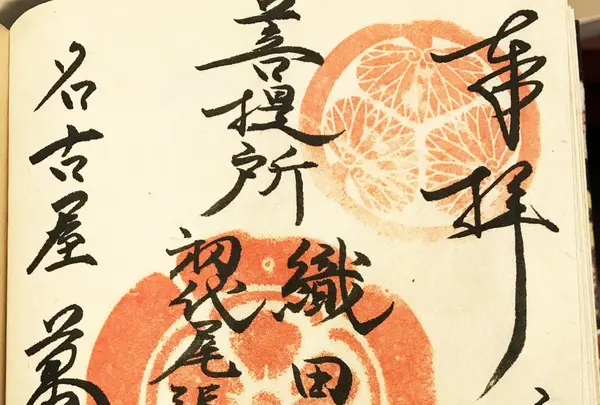 奉拝
菩提所
織田
初代尾張
名古屋 萬